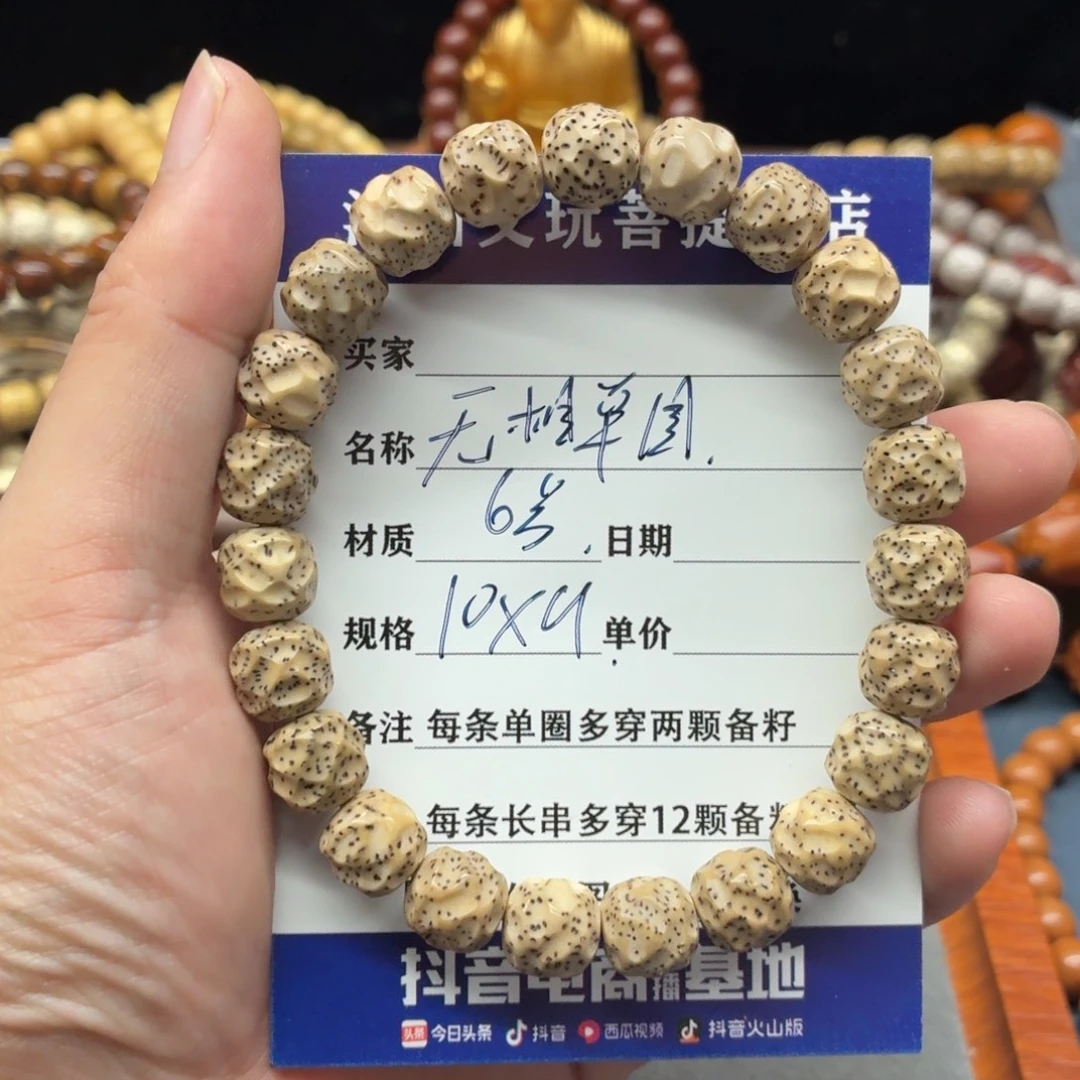 文玩菩提店
买家
名称 无相单圈.
材质 6号. 日期
规格 10X9 单价
备注 每条单圈多穿两颗备籽
每条长串多穿12颗备籽
抖音电商直播基地
头条 今日头条 抖音 西瓜视频 抖音火山版